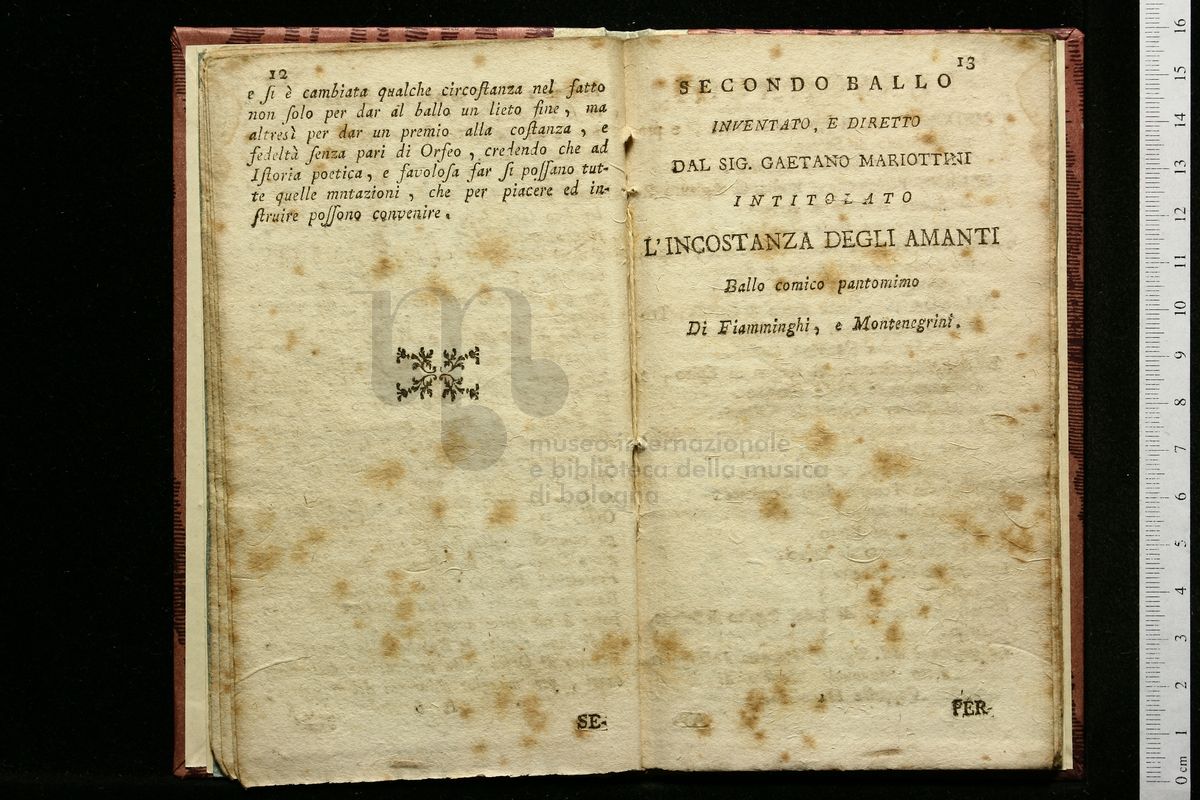 12
e ſi è cambiata qualche circoſtanza nel fatto
non ſolo per dar al ballo un lieto fine, ma
altresì per dar un premio alla coſtanza, e
fedeltà ſenza pari di Orfeo, credendo che ad
Iſtoria poetica, e favoloſa far ſi poſſano tut-
te quelle mntazioni, che per piacere ed in-
ſtruire poſſono convenire.
SE-
13
SECONDO BALLO
INVENTATO, E DIRETTO
DAL SIG. GAETANO MARIOTTINI
INTITOLATO
L'INCOSTANZA DEGLI AMANTI
Ballo comico pantomimo
Di Fiamminghi, e Montenegrini.
PER-
museo internazionale
e biblioteca della musica
di bologna
16
15
14
13
12
11
10
9
8
7
6
5
4
3
2
1
0 cm